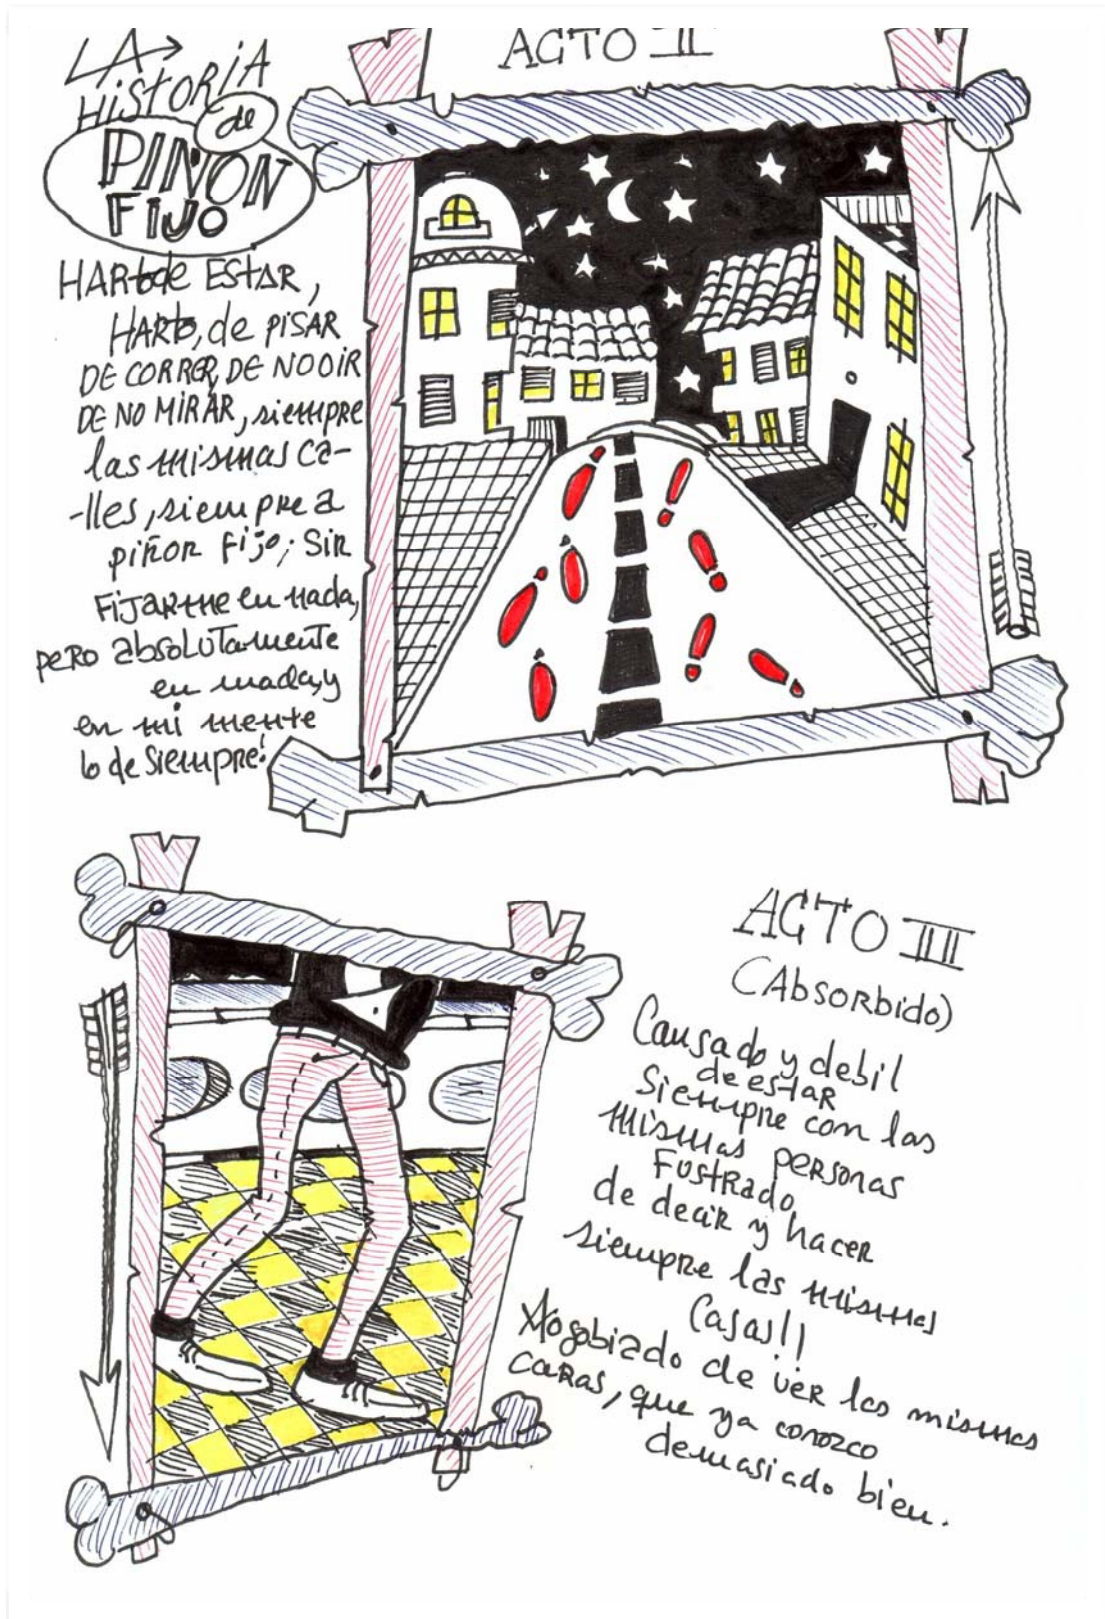 LA
HISTORIA
de
PIÑON
FIJO
ACTO II
HARTO de ESTAR,
HARTO, de PISAR
DE CORRER, DE NO OIR
DE NO MIRAR, siempre
las mismas ca-
-lles, siempre a
piñon Fijo; Sin
FIJARME en nada,
pero absolutamente
en nada, y
en mi mente
lo de Siempre!
ACTO III
(Absorbido)
Cansado y debil
de estar
Siempre con las
mismas personas
Fustrado
de decir y hacer
siempre las mismas
Cosas!!
Agobiado de ver las mismas
caras, que ya conozco
demasiado bien.